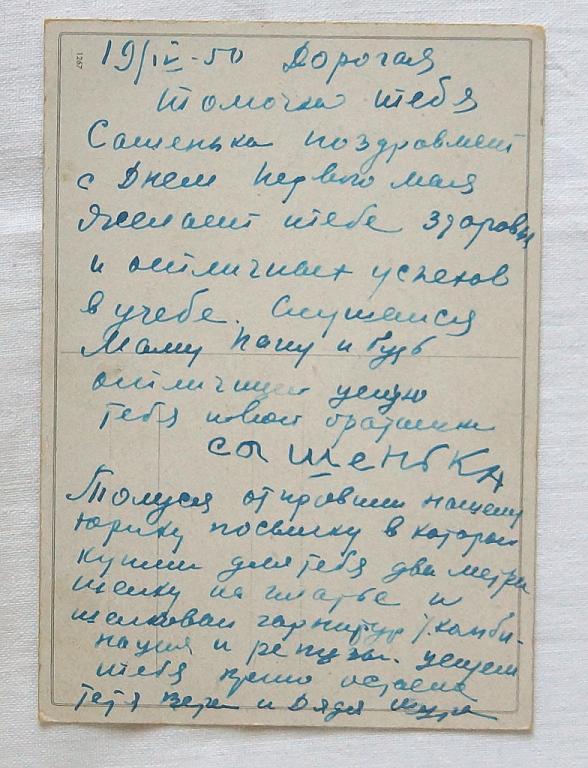 1267
19/IV-50 Дорогая
Томочка тебя
Сашенька поздровляет
с Днем Первого мая
Желает тебе здоровья
и отличных успехов
в учебе. Слушайся
Маму Папу и будь
отличницей целую
тебя твой братишка
САШЕНЬКА
Томуся отправили нашему
Юрику посылку в которой
купили для тебя два метра
шелку на платье и
шелковый гарнитур /комби-
нация и рейтузы. целуем
тебя
Тетя Вера и Дядя Шура